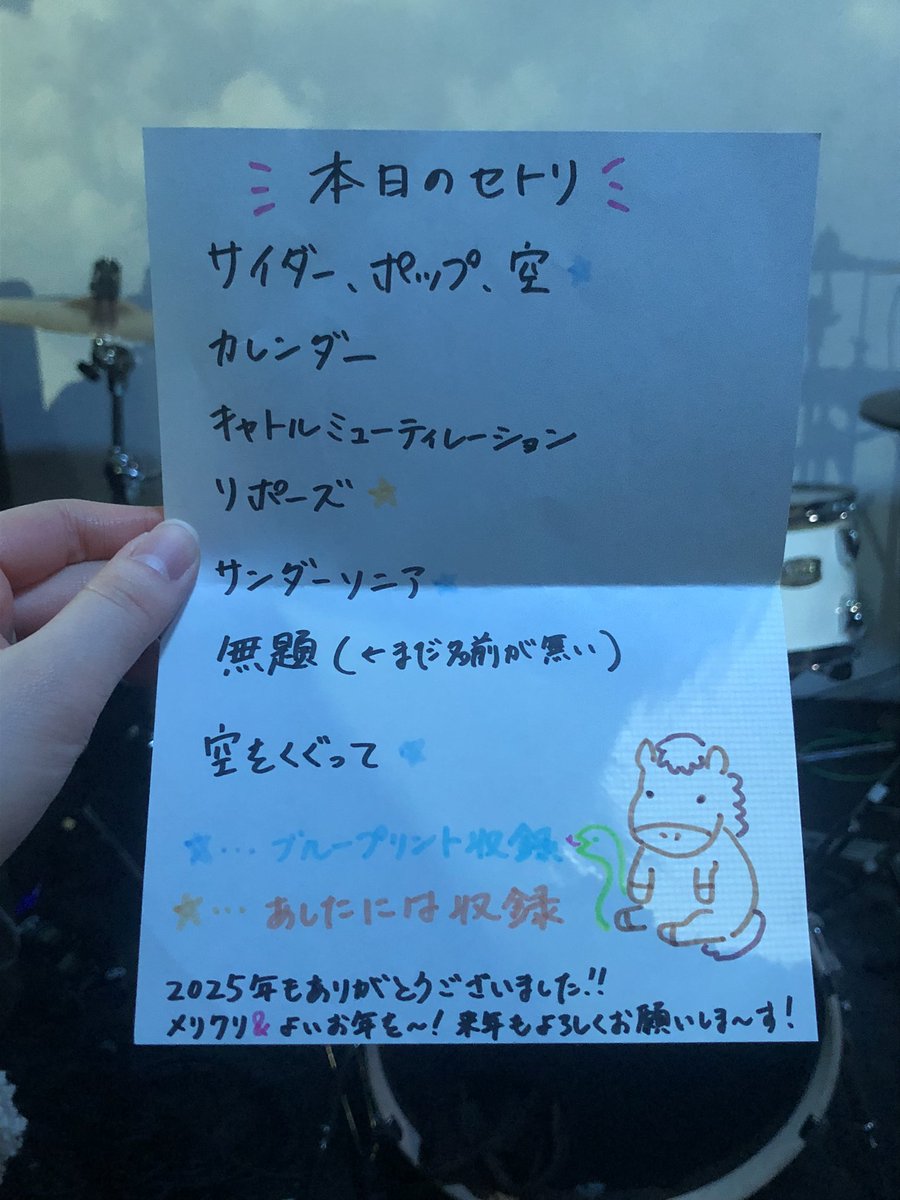 本日のセトリ
サイダー、ポップ、空★
カレンダー
キャトルミューティレーション
リポーズ★
サンダーソニア★
無題(←まだ名前が無い)
空をくぐって★
★…ブループリント収録
★…あしたには収録
2025年もありがとうございました!!
メリクリ&よいお年を〜!来年もよろしくお願いしま〜す!